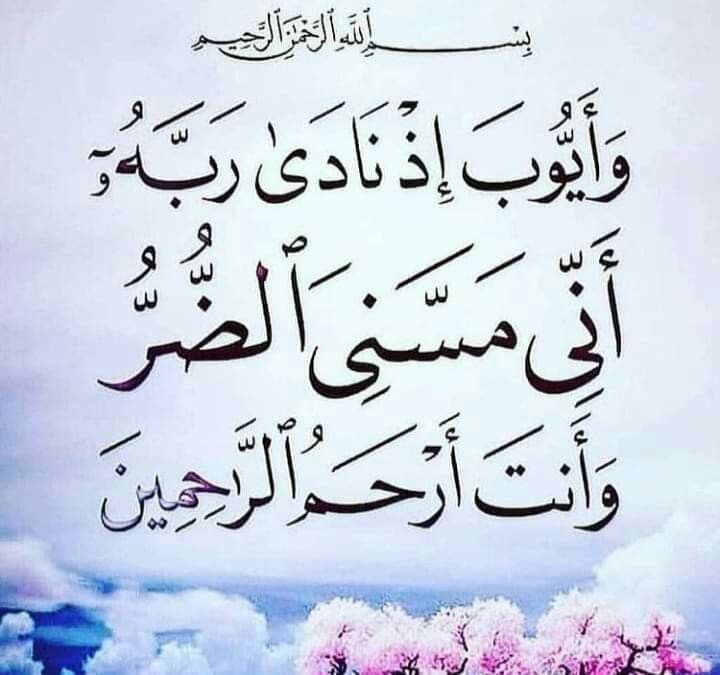 بِسْمِ ٱللَّهِ ٱلرَّحْمَٰنِ ٱلرَّحِيمِ
وَأَيُّوبَ إِذْ نَادَىٰ رَبَّهُۥٓ
أَنِّى مَسَّنِىَ ٱلضُّرُّ
وَأَنتَ أَرْحَمُ ٱلرَّٰحِمِينَ